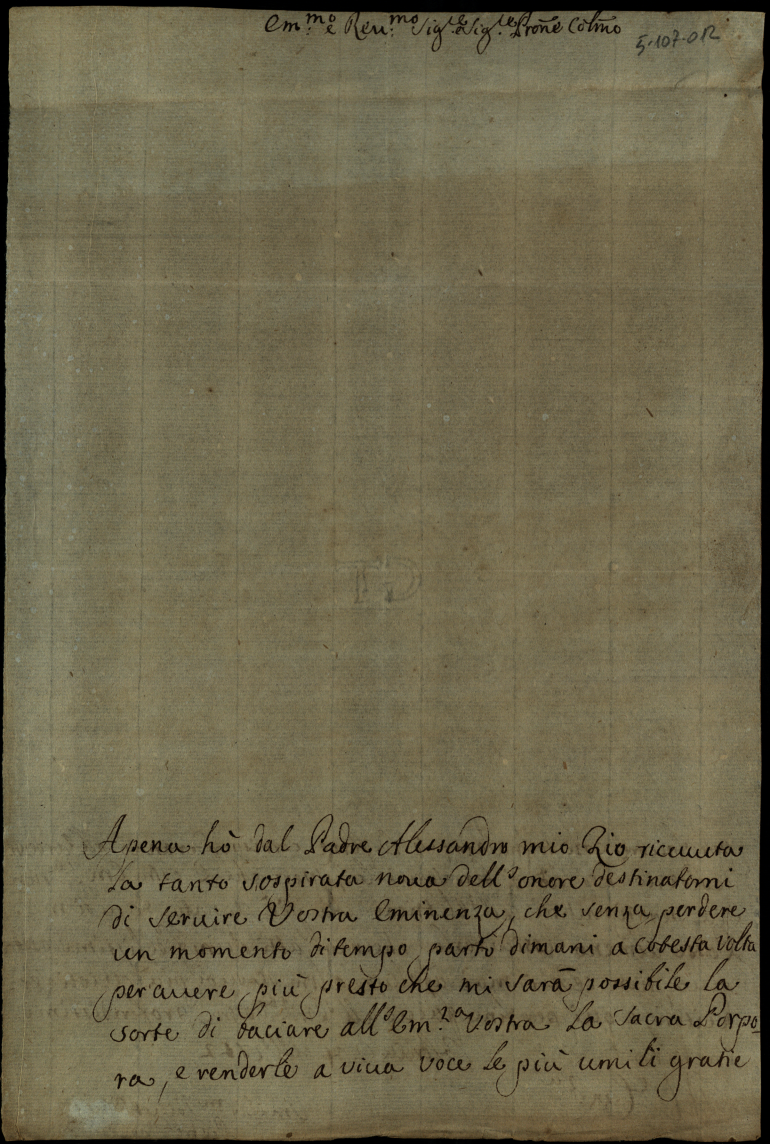 Em.mo e Reu.mo Sig.re e Sig.re Prone Colmo
5-107-012
Apena hò dal Padre Alessandro mio Zio riceuuta
la tanto sospirata noua dell'onore destinatomi
di seruire Vostra Eminenza, che senza perdere
un momento di tempo parto dimani a cotesta volta
per auere più presto che mi sarà possibile la
sorte di baciare all'Em.za Vostra la sacra Porpo-
ra, e renderle a viua voce le più umili gratie